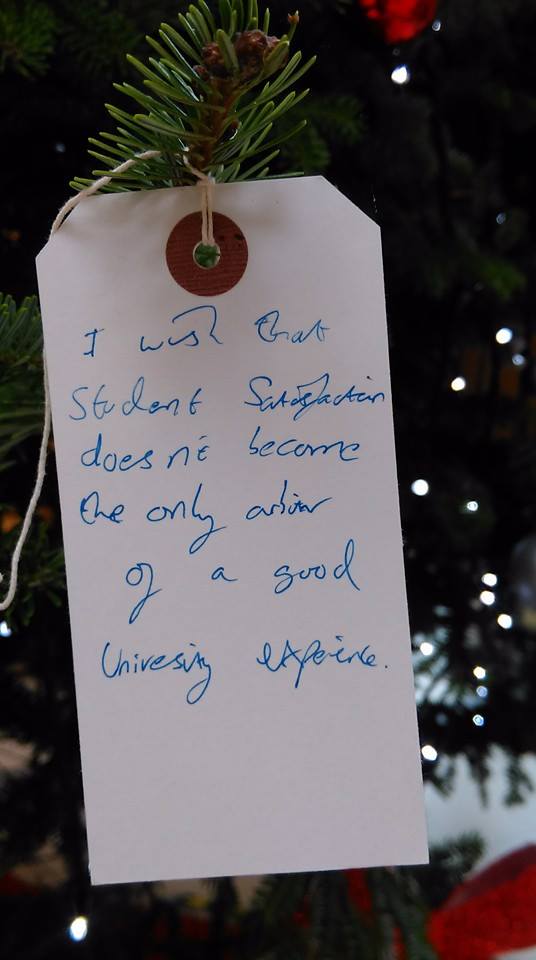 I wish that
Student Satisfaction
doesn't become
the only arbiter
of a good
University experience.